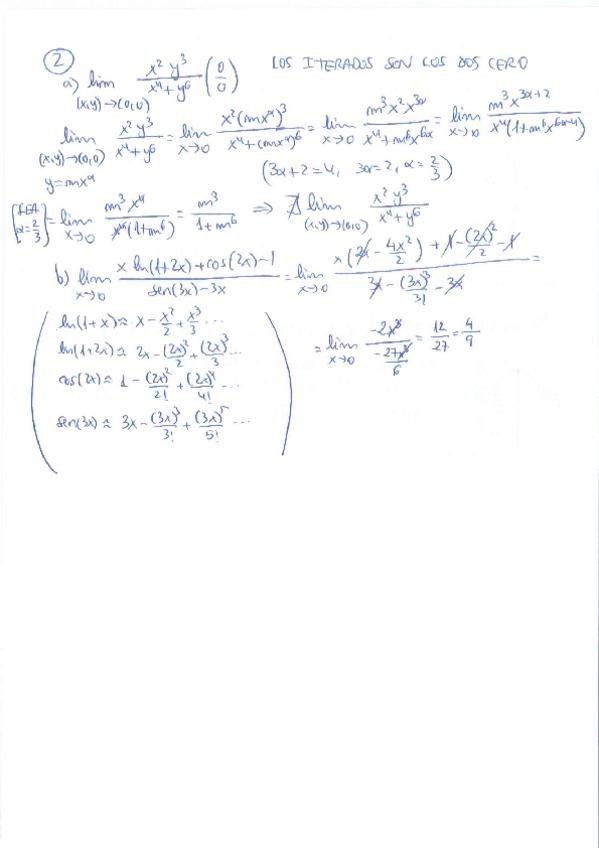 2 LOS ITERADOS SON LOS DOS CERO
a) lim (x,y)→(0,0) x² y³ / (x⁴ + y⁶) (0/0)
lim (x,y)→(0,0) y = mx^α x² y³ / (x⁴ + y⁶) = lim x→0 x² (mx^α)³ / (x⁴ + (mx^α)⁶) = lim x→0 m³ x² x^3α / (x⁴ + m⁶ x^6α) = lim x→0 m³ x^(3α+2) / (x⁴ (1 + m⁶ x^(6α-4)))
(3α + 2 = 4, 3α = 2, α = 2/3)
[SEA α = 2/3] = lim x→0 m³ x⁴ / (x⁴ (1 + m⁶)) = m³ / (1 + m⁶) ⇒ ∄ lim (x,y)→(0,0) x² y³ / (x⁴ + y⁶)
b) lim x→0 (x ln(1+2x) + cos(2x) - 1) / (sen(3x) - 3x) = lim x→0 (x (2x - 4x²/2) + 1 - (2x)²/2 - 1) / (3x - (3x)³/3! - 3x) =
ln(1+x) ≈ x - x²/2 + x³/3 ...
ln(1+2x) ≈ 2x - (2x)²/2 + (2x)³/3 ...
cos(2x) ≈ 1 - (2x)²/2! + (2x)⁴/4! ...
sen(3x) ≈ 3x - (3x)³/3! + (3x)⁵/5! ...
= lim x→0 -2x³ / (-27x³/6) = 12/27 = 4/9